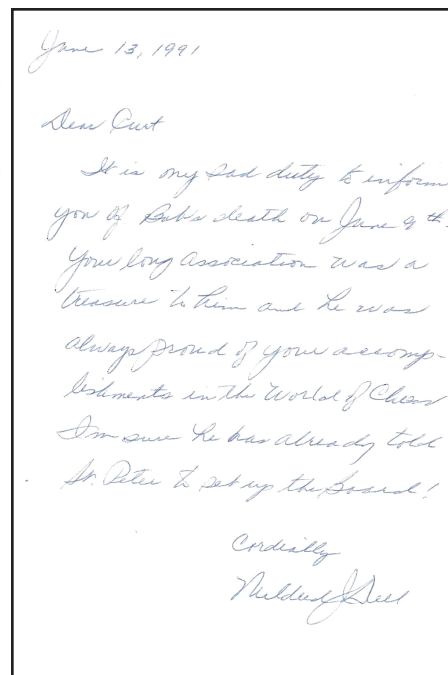 June 13, 1991
Dear Curt
It is my sad duty to inform
you of Bob's death on June 9th.
Your long association was a
treasure to him and he was
always proud of your accomp-
lishments in the World of Chess
I'm sure he has already told
St. Peter to set up the Board!
Cordially
Mildred J